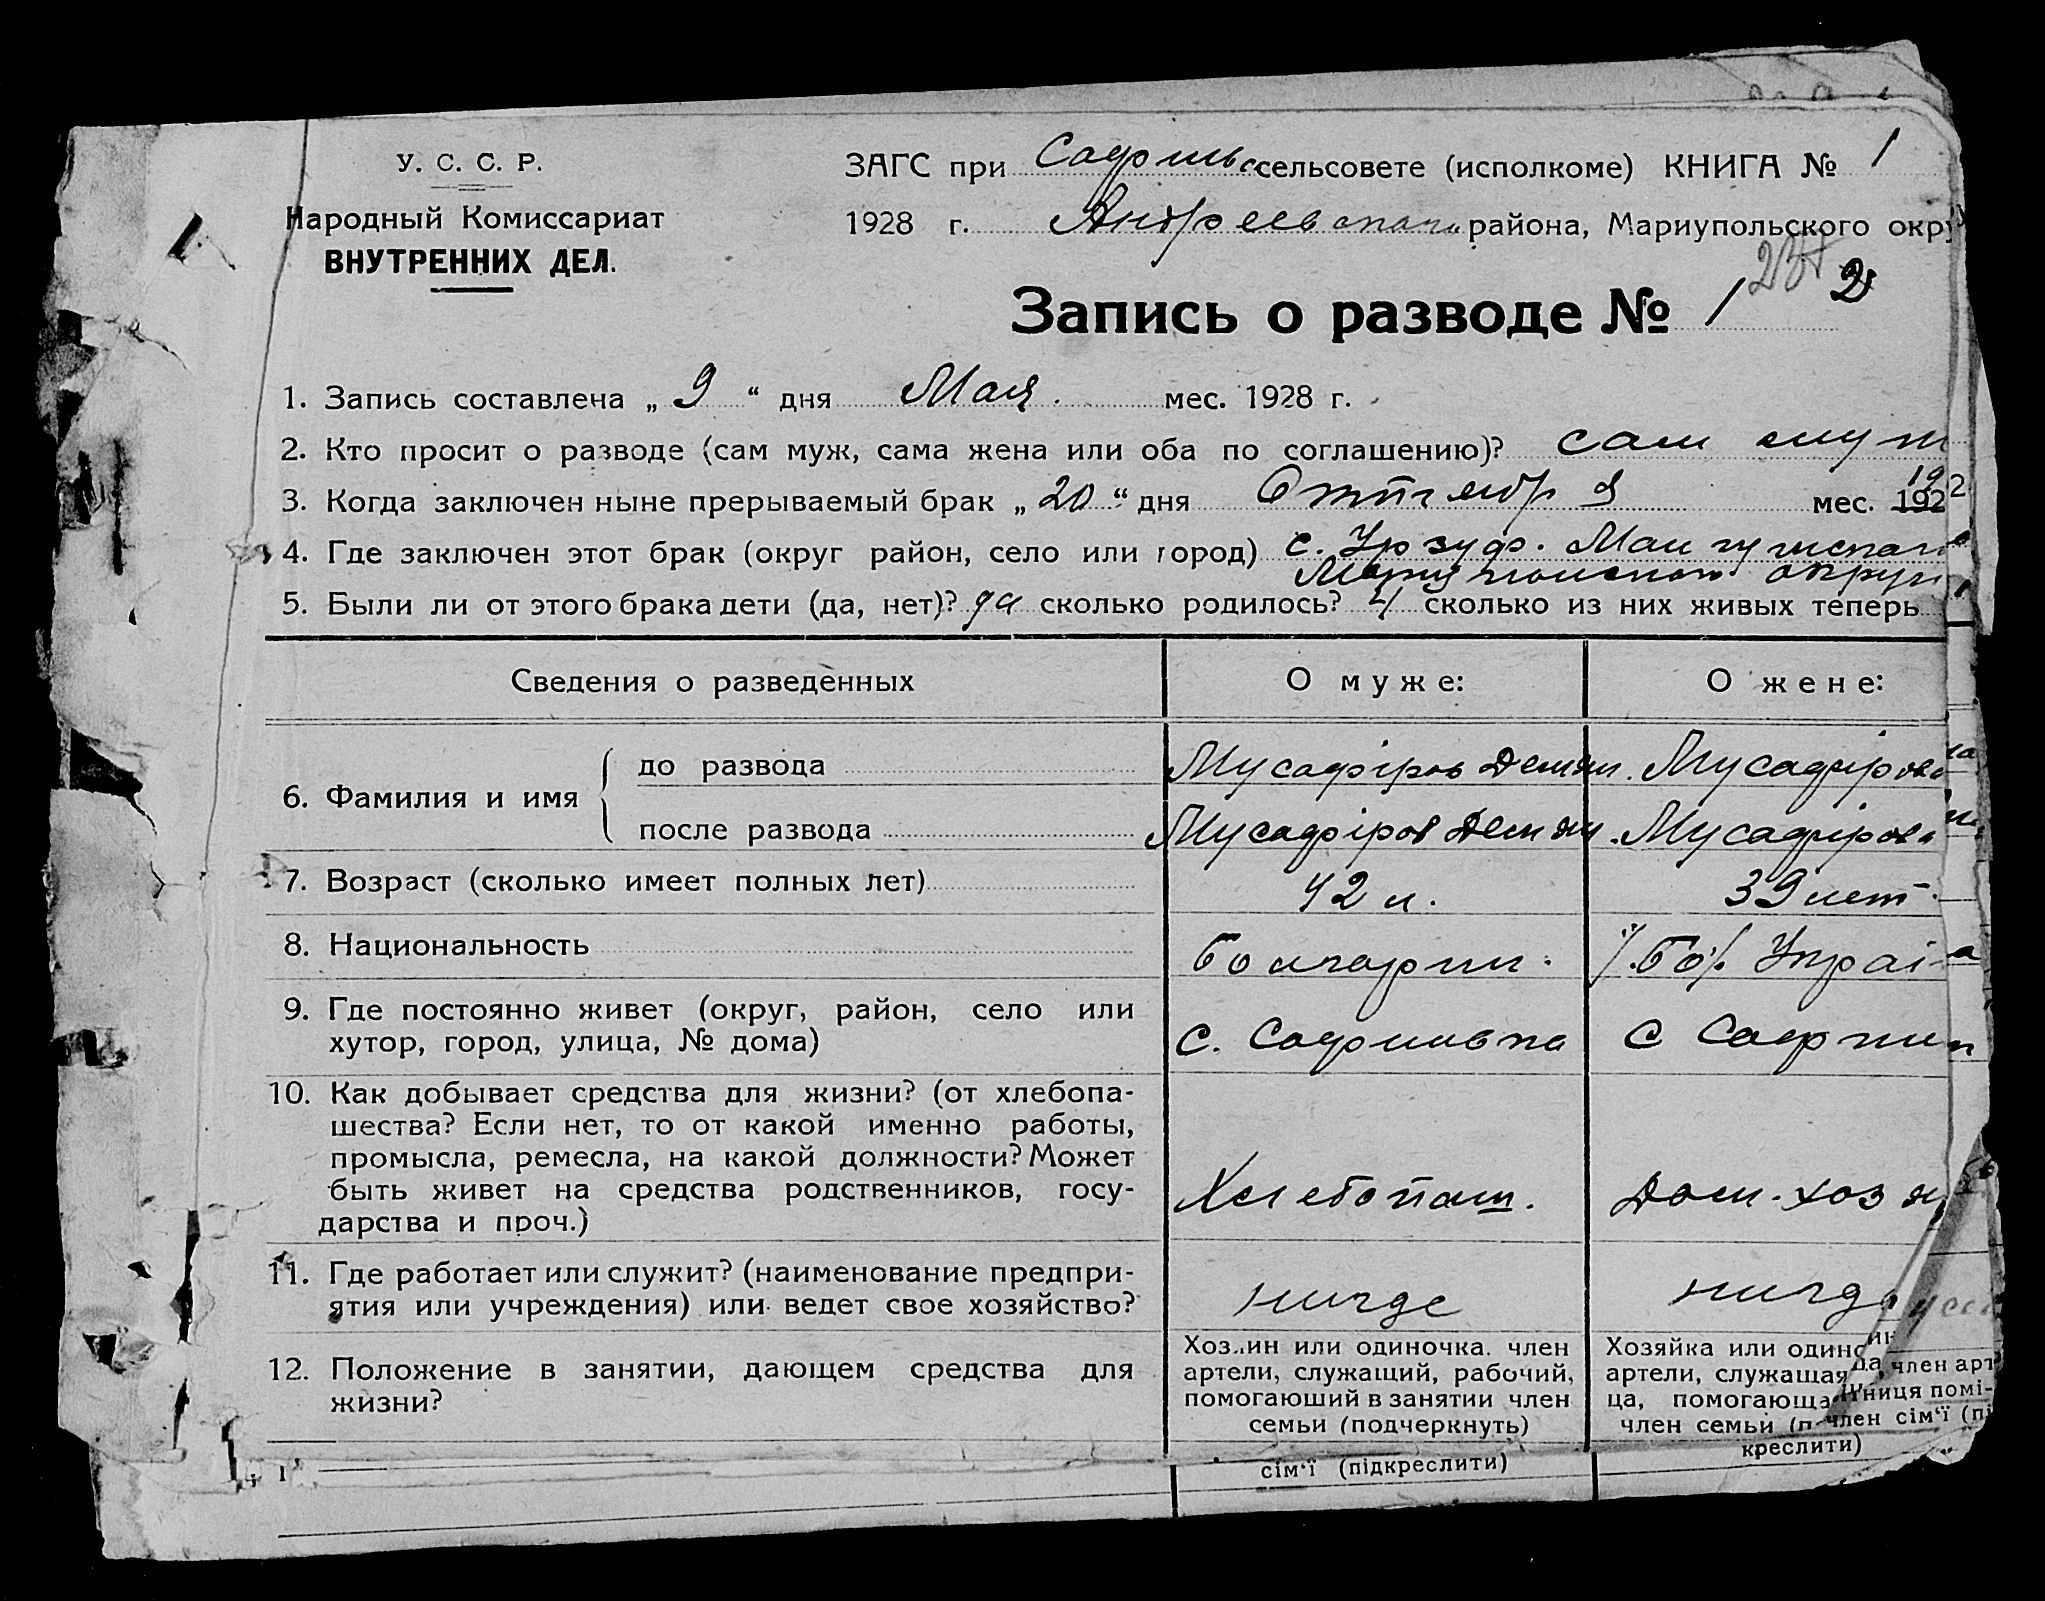 У. С. С. Р.
Народный Комиссариат
ВНУТРЕННИХ ДЕЛ.
ЗАГС при Софиевс сельсовете (исполкоме) КНИГА № 1
1928 г. Андреевского района, Мариупольского окру
Запись о разводе № 1
2
1. Запись составлена „ 9 “ дня Мая. мес. 1928 г.
2. Кто просит о разводе (сам муж, сама жена или оба по соглашению)? сам муж
3. Когда заключен ныне прерываемый брак „ 20 “ дня Октября мес. 192
19
4. Где заключен этот брак (округ район, село или город) с. Урзуф. Мангушского
Мариупольского округа
5. Были ли от этого брака дети (да, нет)? да сколько родилось? 4 сколько из них живых теперь
Сведения о разведенных
О муже:
О жене:
6. Фамилия и имя
до развода Мусафіров Демян. Мусафирова
после развода Мусафіров Демян. Мусафирова
7. Возраст (сколько имеет полных лет) 42 л. 39 лет.
8. Национальность Болгарин. Бо Украі
9. Где постоянно живет (округ, район, село или
хутор, город, улица, № дома) с. Софиевка с Софи
10. Как добывает средства для жизни? (от хлебопа-
шества? Если нет, то от какой именно работы,
промысла, ремесла, на какой должности? Может
быть живет на средства родственников, госу-
дарства и проч.) Хлебопаш. Дом. хозя
11. Где работает или служит? (наименование предпри-
ятия или учреждения) или ведет свое хозяйство? нигде нигде
12. Положение в занятии, дающем средства для
жизни?
Хозяин или одиночка. член
артели, служащий, рабочий,
помогающий в занятии член
семьи (подчеркнуть)
Хозяйка или одино
артели, служащая
ца, помогающа
член семьи (п
член арт
ниця помі-
член сім'ї (пі
креслити)
сім'ї (підкреслити)